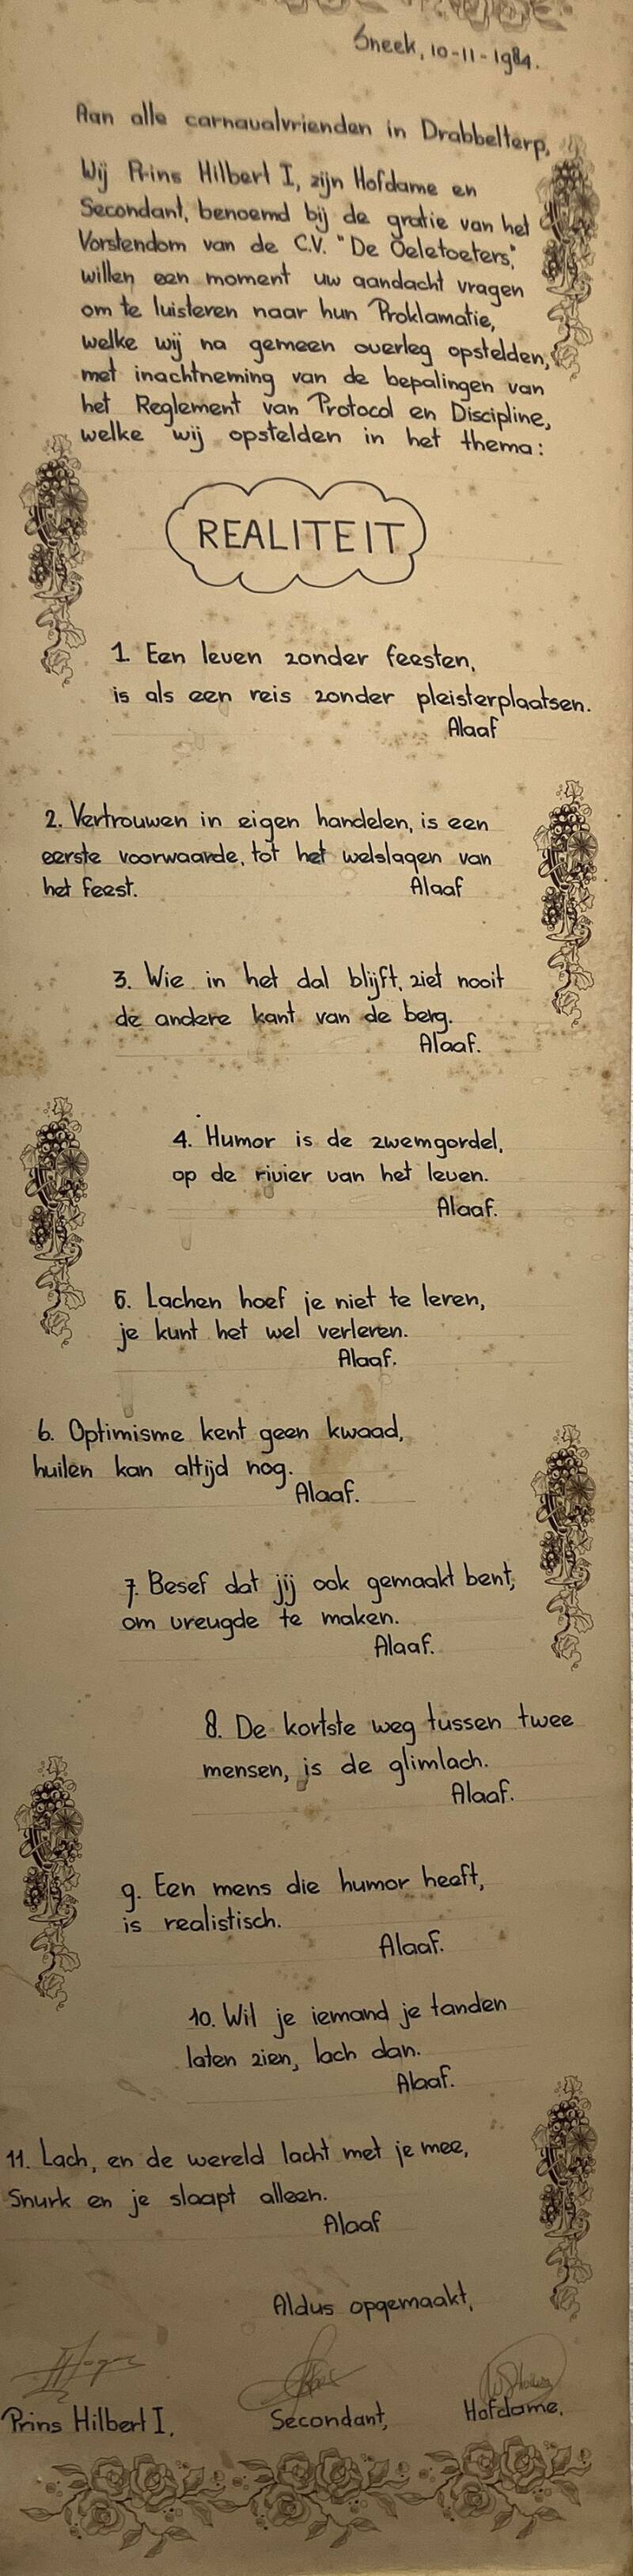 Sneek, 10-11-1984.
Aan alle carnavalvrienden in Drabbelterp,
Wij Prins Hilbert I, zijn Hofdame en
Secondant, benoemd bij de gratie van het
Vorstendom van de C.V. "De Oeletoeters",
willen een moment uw aandacht vragen
om te luisteren naar hun Proklamatie,
welke wij na gemeen overleg opstelden,
met inachtneming van de bepalingen van
het Reglement van Protocol en Discipline,
welke wij opstelden in het thema:
REALITEIT
1. Een leven zonder feesten,
is als een reis zonder pleisterplaatsen.
Alaaf
2. Vertrouwen in eigen handelen, is een
eerste voorwaarde, tot het welslagen van
het feest. Alaaf
3. Wie in het dal blijft, ziet nooit
de andere kant van de berg.
Alaaf.
4. Humor is de zwemgordel,
op de rivier van het leven.
Alaaf.
5. Lachen hoef je niet te leren,
je kunt het wel verleren.
Alaaf.
6. Optimisme kent geen kwaad,
huilen kan altijd nog.
Alaaf.
7. Besef dat jij ook gemaakt bent,
om vreugde te maken.
Alaaf.
8. De kortste weg tussen twee
mensen, is de glimlach.
Alaaf.
9. Een mens die humor heeft,
is realistisch.
Alaaf.
10. Wil je iemand je tanden
laten zien, lach dan.
Alaaf.
11. Lach, en de wereld lacht met je mee,
Snurk en je slaapt alleen.
Alaaf
Aldus opgemaakt,
Prins Hilbert I. Secondant, Hofdame.